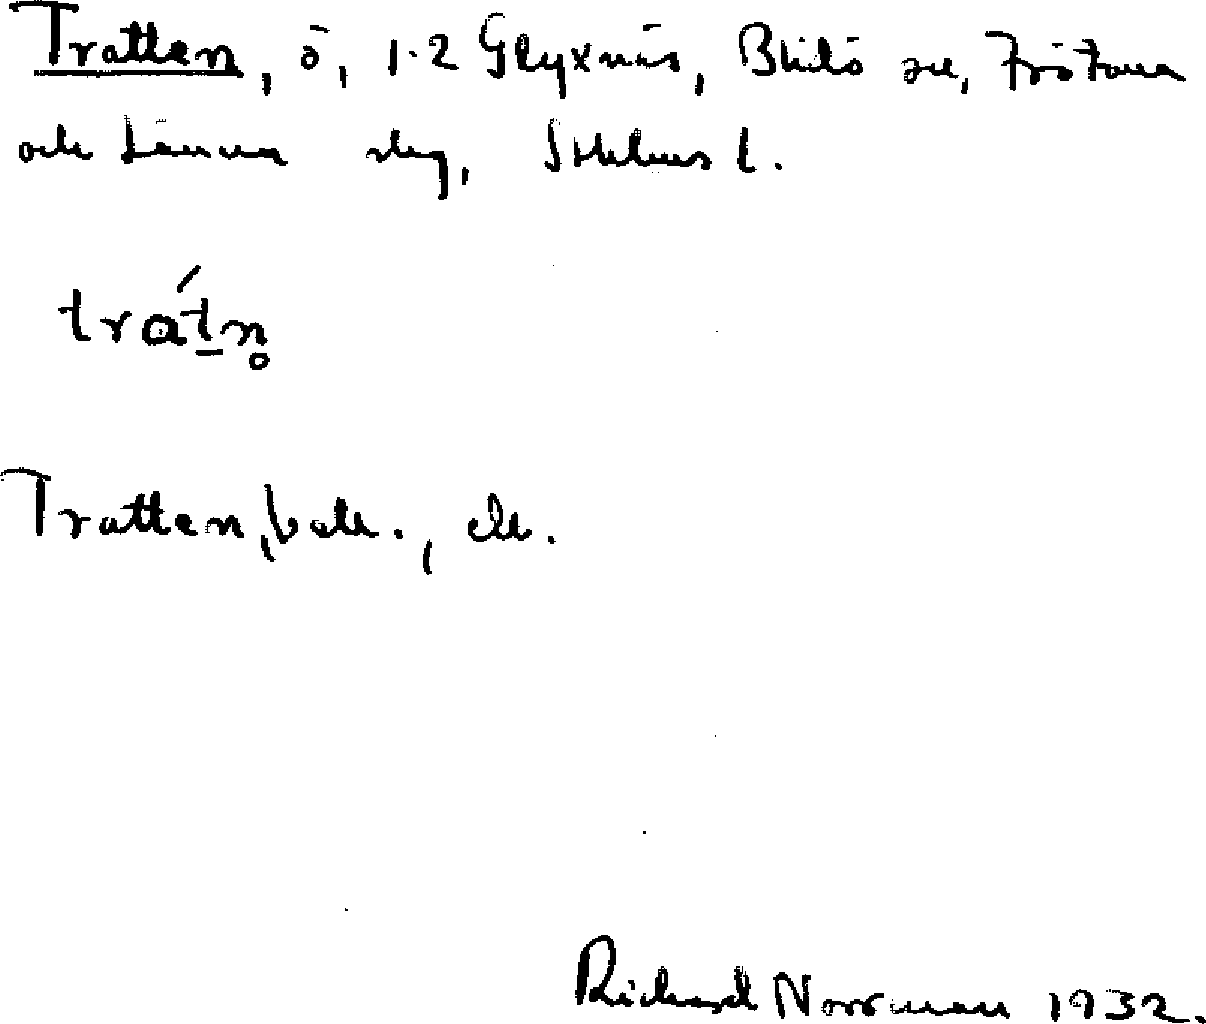 Tratten, ö, 1.2 Glyxnäs, Blidö sn, Frötuna
och Länna skg, Sthlms l.
trátn̥
Tratten, batt., etc.
Richard Norrman 1932.